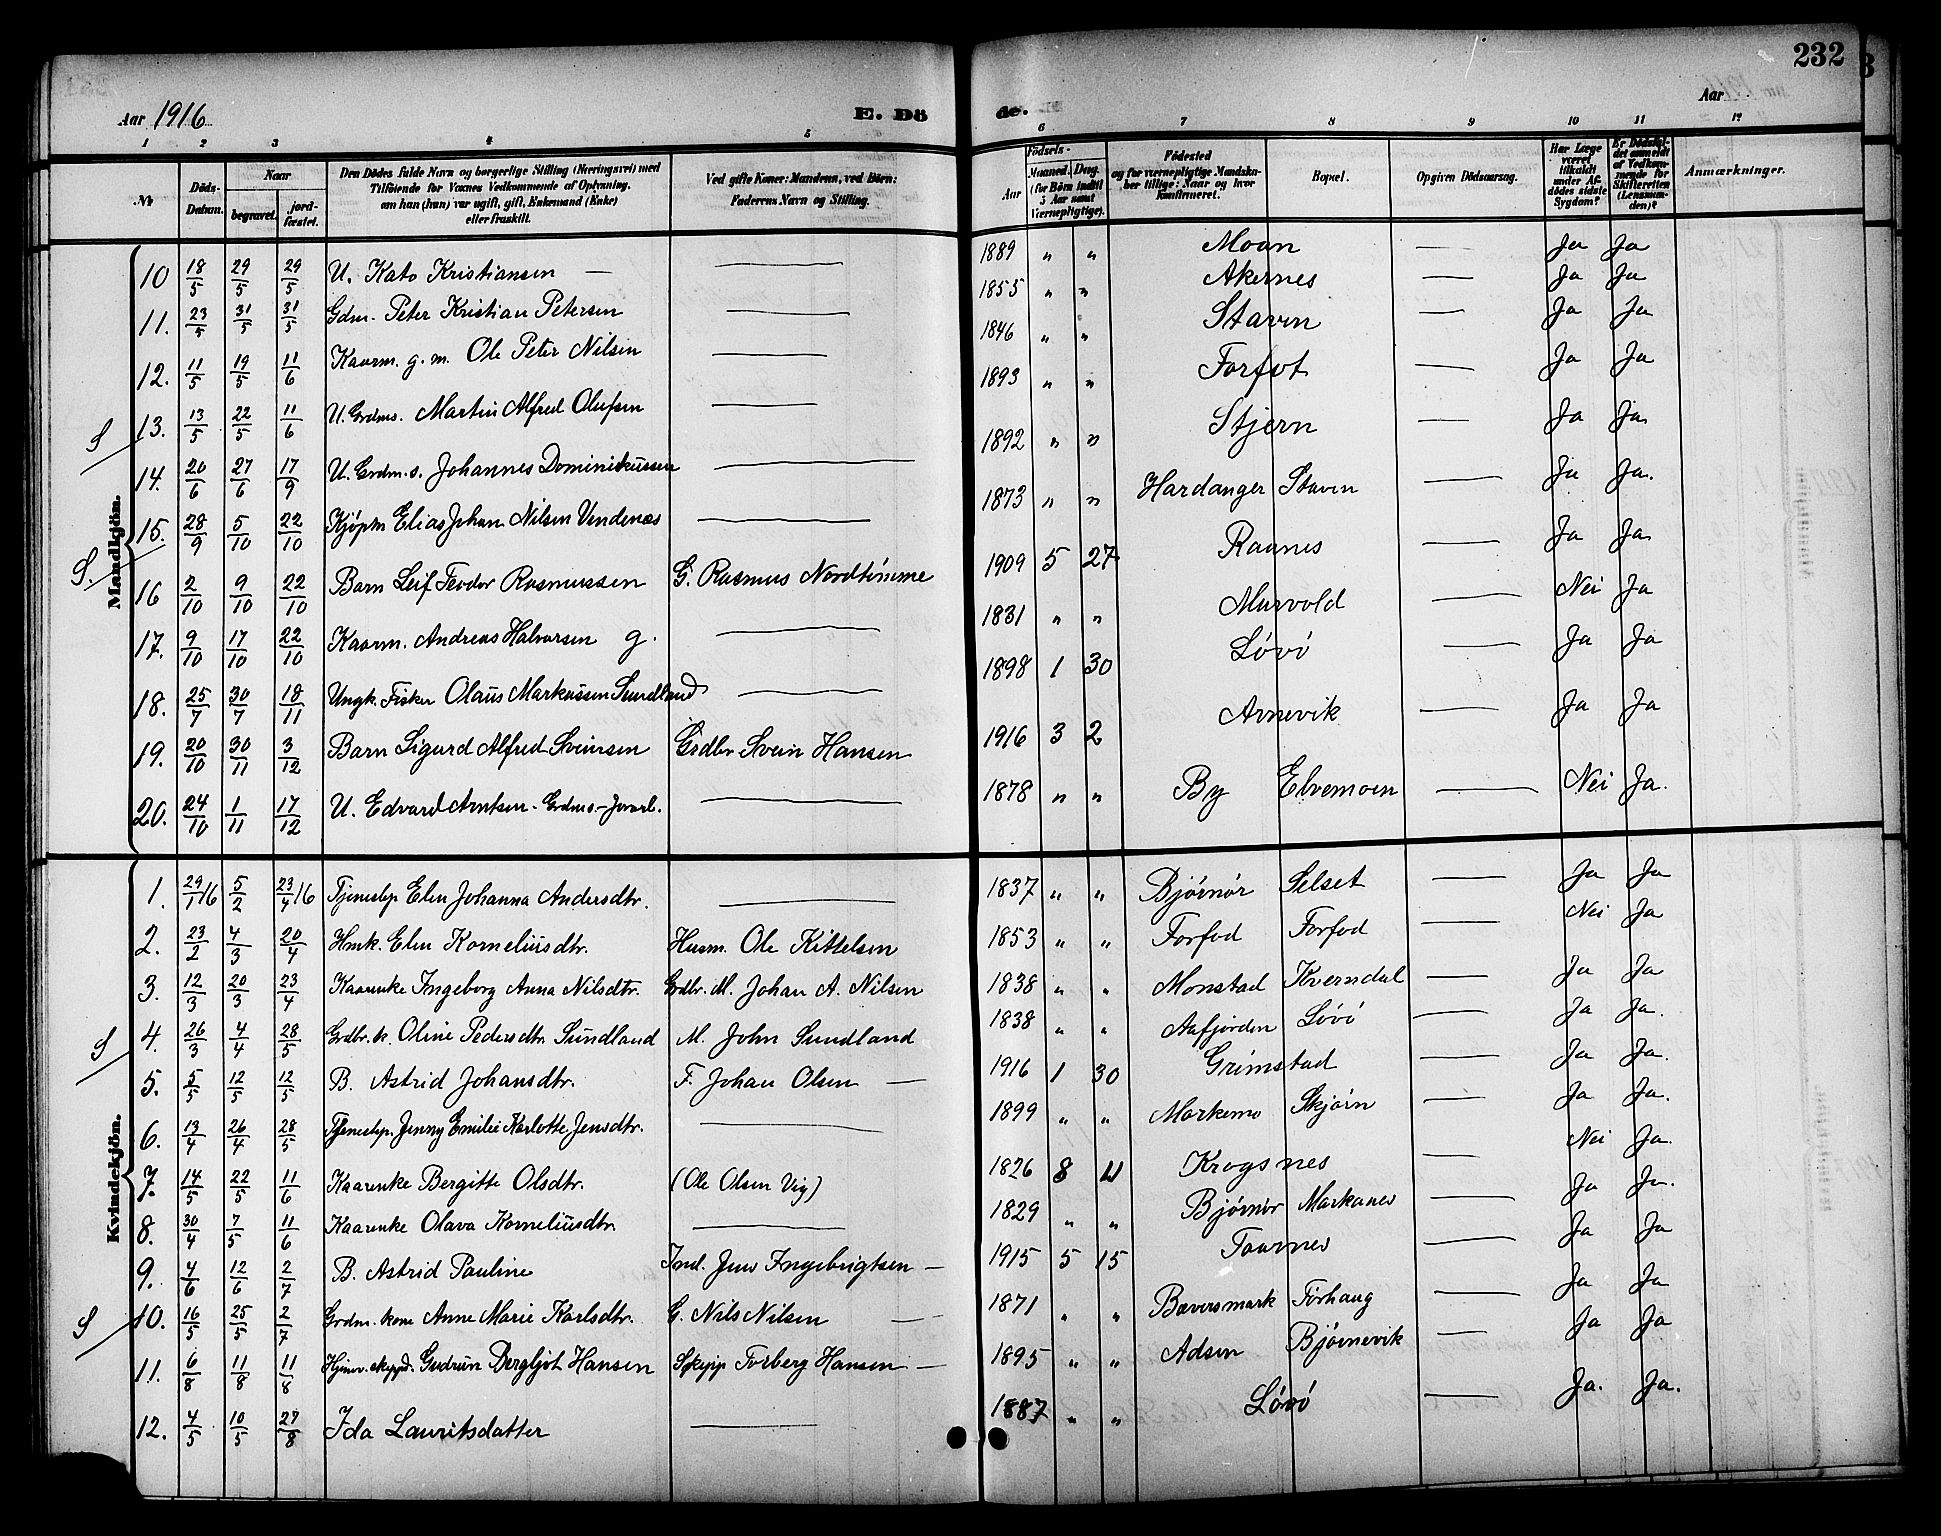 232
Aar 1916 E. Dö de. Aar
1 2 3 4 5 6 7 8 9 10 11 12
№ Döds-Datum. Naar begravet. jordfæstet. Den Dödes fulde Navn og borgerlige Stilling (Næringsvei) med Tilföiende for Voxnes Vedkommende af Oplysning, om han (hun) var ugift, gift, Enkemand (Enke) eller fraskilt. Ved gifte Koner: Mandens, ved Börn: Faderens Navn og Stilling. Födsels- Aar Maaned. Dag. (for Börn indtil 5 Aar samt Værnepligtige). Födested og for værnepligtige Mandskaber tillige: Naar og hvor konfirmeret. Bopæl. Opgiven Dödsaarsag. Har Læge været tilkaldt under Afdödes sidste Sygdom? Er Dödsfaldet anmeldt af Vedkommende for Skifteretten (Lensmanden)? Anmærkninger.
Mandkjön.
10 18/5 29/5 29/5 U. Kato Kristiansen — — 1889 " " Moan — Ja Ja
11. 23/5 31/5 31/5 Gdm. Peter Kristian Petersen — 1855 " " Akernes — Ja Ja
12. 11/5 19/5 11/6 Kaarm. g. m. Ole Peter Nilsen — 1846 " " Stavn — Ja Ja
S 13. 13/5 22/5 11/6 U. Grdms. Martin Alfred Olufsen — 1893 " " Forfot — Ja Ja
14. 20/6 27/6 17/9 U. Grdm. s. Johannes Dominikussen — 1892 " " Stjern — Ja Ja
S. 15. 28/9 5/10 22/10 Kjöpm Elias Johan Nilsen Vendenæs — 1873 " " Hardanger Stavn — Ja Ja.
16 2/10 9/10 22/10 Barn Leif Teodor Rasmussen G. Rasmus Nordtömme 1909 5 27 Raanes — Ja Ja
17. 9/10 17/10 22/10 Kaarm. Andreas Halvorsen g. — 1831 " " Murvold — Nei Ja
18. 25/7 30/7 18/11 Ungk. Fisker Olaus Markussen Sundland — 1898 1 30 Lövö — Ja Ja
19. 20/10 30/11 3/12 Barn Sigurd Alfred Sveinsen Grdbr Svein Hansen 1916 3 2 Arnevik — Ja Ja
20. 24/10 1/11 17/12 U. Edvard Arntsen - Grdms. — 1878 " " By Elvemoen — Nei Ja.
Kvindekjön.
1. 29/1 16 5/2 23/4 16 Tjenestep Elen Johanna Andersdtr. — 1837 " " Bjørnør Selset — Ja Ja
2. 23/2 4/3 20/4 Hmk. Elen Korneliusdtr. Husm. Ole Kittelsen 1853 " " Forfod Forfod — Nei Ja
3. 12/3 20/3 23/4 Kaarenke Ingeborg Anna Nilsdtr. Grdbr. M. Johan A. Nilsen 1838 " " Monstad Kverndal — Ja Ja
S 4. 26/3 4/4 28/5 Grdbr. k. Oline Pedersdtr. Sundland M. John Sundland 1838 " " Aafjorden Lövö — Ja Ja.
5. 5/5 12/5 12/5 B. Astrid Johansdtr. F. Johan Olsen — 1916 1 30 Grimstad — Ja Ja.
6. 13/4 26/4 28/5 Tjenestep. Jenny Emilie Karlotte Jensdtr. — 1899 " " Markemo Skjørn — Ja Ja.
7. 14/5 22/5 11/6 Kaarenke Bergitte Olsdtr. (Ole Olsen Vig) 1826 8 11 Krogsnes — Nei Ja.
8. 30/4 7/5 11/6 Kaarenke Olava Korneliusdtr. — 1829 " " Bjørnør Markanes — Ja Ja.
9. 4/6 12/6 2/7 B. Astrid Pauline Ind. Jens Ingebrigtsen — 1915 5 15 Taarnes — Ja Ja
S 10. 16/5 25/5 2/7 Grdm. kone Anne Marie Karlsdtr. G. Nils Nilsen — 1871 " " Bæversmark Torhaug — Ja Ja
11. 6/8 11/8 11/8 Gudrun Bergljot Hansen Skipp Torberg Hansen — 1895 " " Adsen Bjørnevik — Ja Ja
12. 4/5 10/5 27/8 Ida Lauritsdatter — 1887 " " Lövö — Ja. Ja.